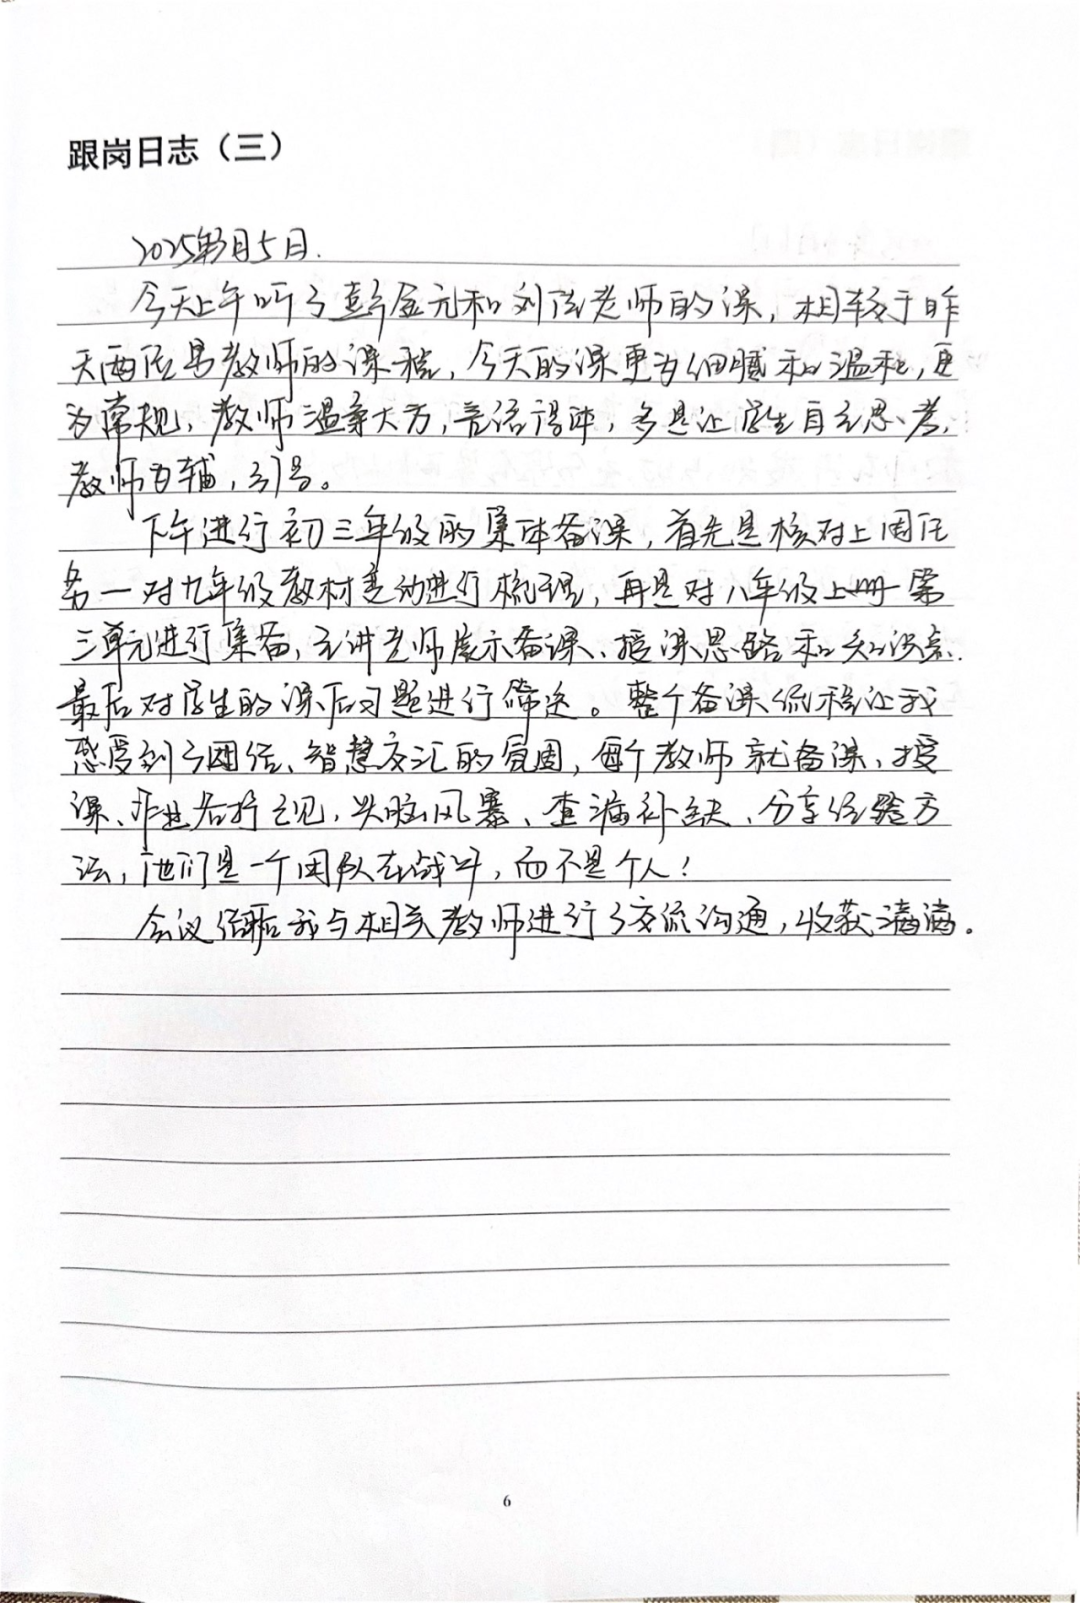 跟岗日志（三）
2025年月5日.
今天上午听了彭金元和刘老师的课，相较于昨
天两位男教师的课程，今天的课更为细腻和温和，更
为常规，教师温柔大方，言语得体，多是让学生自主思考，
教师为辅，引导。
下午进行初三年级的集体备课，首先是核对上周任
务一对九年级教材变动进行梳理，再是对八年级上册第
三单元进行集备，主讲老师展示备课、授课思路和知识点.
最后对学生的课后习题进行筛选。整个备课流程让我
感受到了团结、智慧交汇的氛围，每个教师就备课、授
课、作业各抒己见，头脑风暴、查漏补缺、分享经验方
法，他们是一个团队在战斗，而不是个人！
会议结束后我与相关教师进行了交流沟通，收获满满。
6